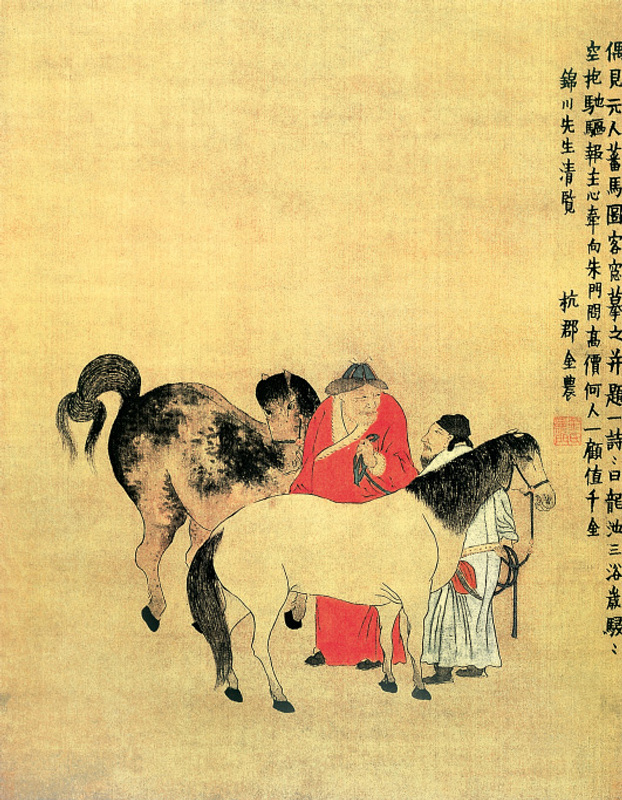 偶見元人蕃馬圖客窓摹之并題一詩〻曰龍池三浴歲駸〻
空抱馳驅報主心牽向朱門問高價何人一顧值千金
錦川先生清覽 杭郡金農